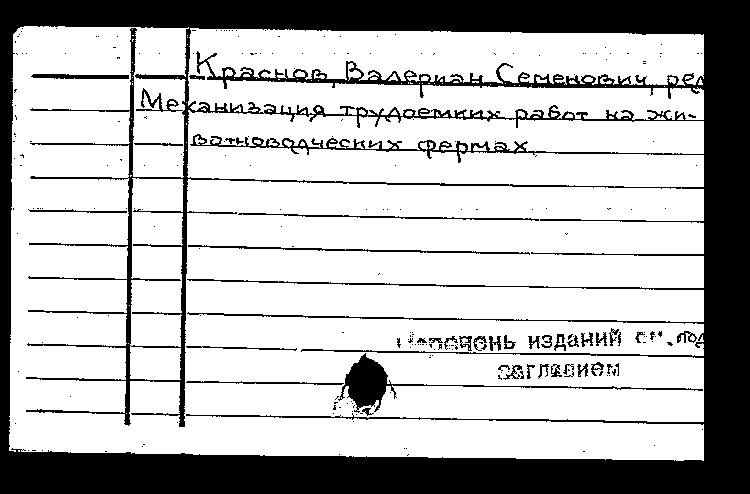 Краснов, Валериан Семенович, ред
Механизация трудоемких работ на жи-
вотноводческих фермах
Перечень изданий см. под
заглавием